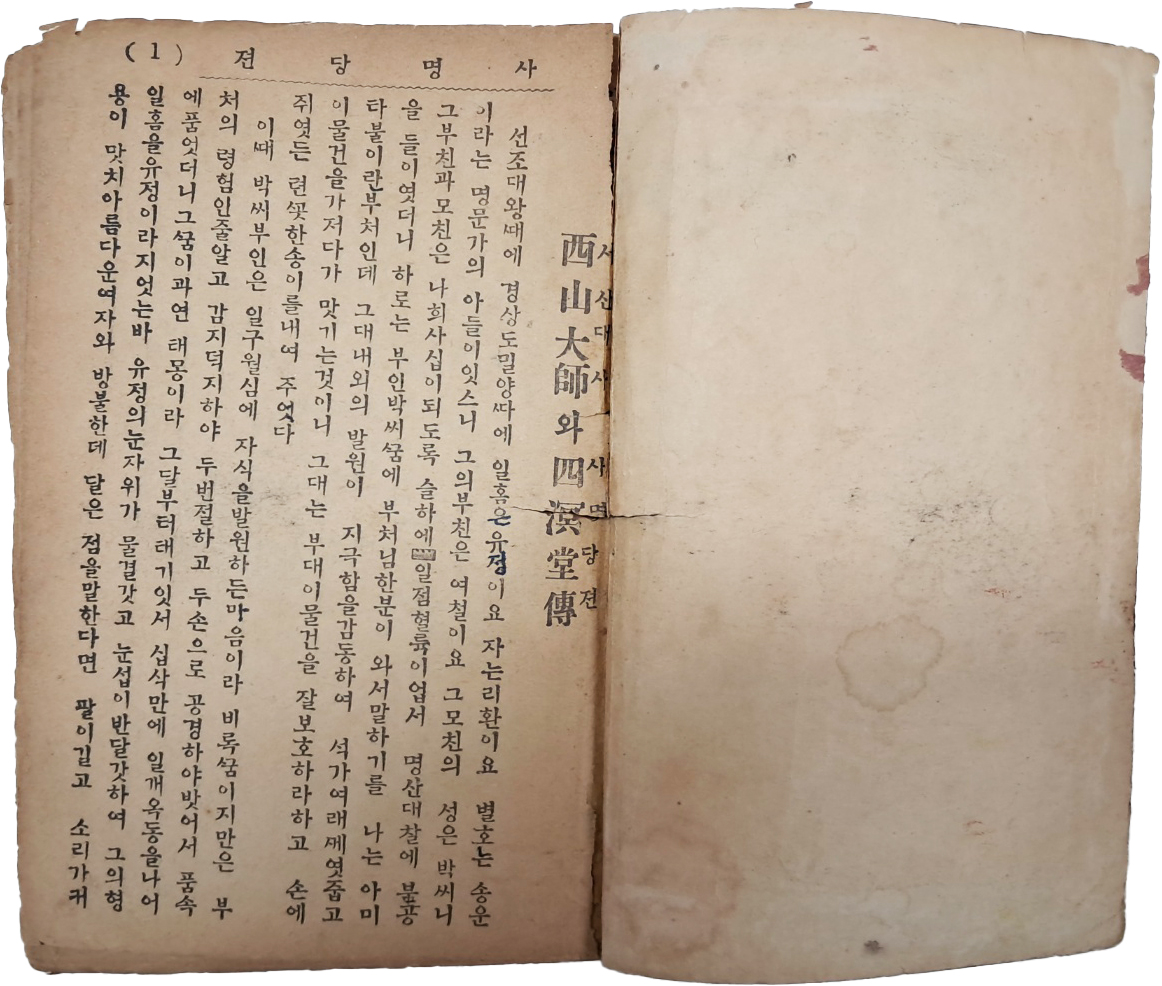 (1) 사명당젼
서산대사 사명당젼
西山大師와 四溟堂傳
선조대왕ᄯᅢ에 경상도밀양ᄯᅡ에 일홈은유정이요 자는리환이요 별호는 송운
이라는 명문가의 아들이잇스니 그의부친은 여철이요 그모친의 성은 박씨니
그부친과모친은 나희사십이되도록 슬하에 일졈혈륙이업서 명산대찰에 불공
을 들이엿더니 하로는 부인박씨ᄭᅮᆷ에 부처님한분이 와서말하기를 나는 아미
타불이란부처인데 그대내외의 발원이 지극함을감동하여 석가여래ᄭᅦ엿줍고
이물건을가저다가 맛기는것이니 그대는 부대이물건을 잘보호하라하고 손에
쥐엿든 련ᄭᅩᆺ한송이를내여 주엇다
이ᄯᅢ 박씨부인은 일구월심에 자식을발원하든마음이라 비록ᄭᅮᆷ이지만은 부
처의 령험인줄알고 감지덕지하야 두번절하고 두손으로 공경하야밧어서 품속
에품엇더니그ᄭᅮᆷ이과연 태몽이라 그달부터태기잇서 십삭만에 일개옥동을나어
일홈을유정이라지엇는바 유정의눈자위가 물결갓고 눈섭이반달갓하여 그의형
용이 맛치아름다운여자와 방불한데 달은 점을말한다면 팔이길고 소리가커